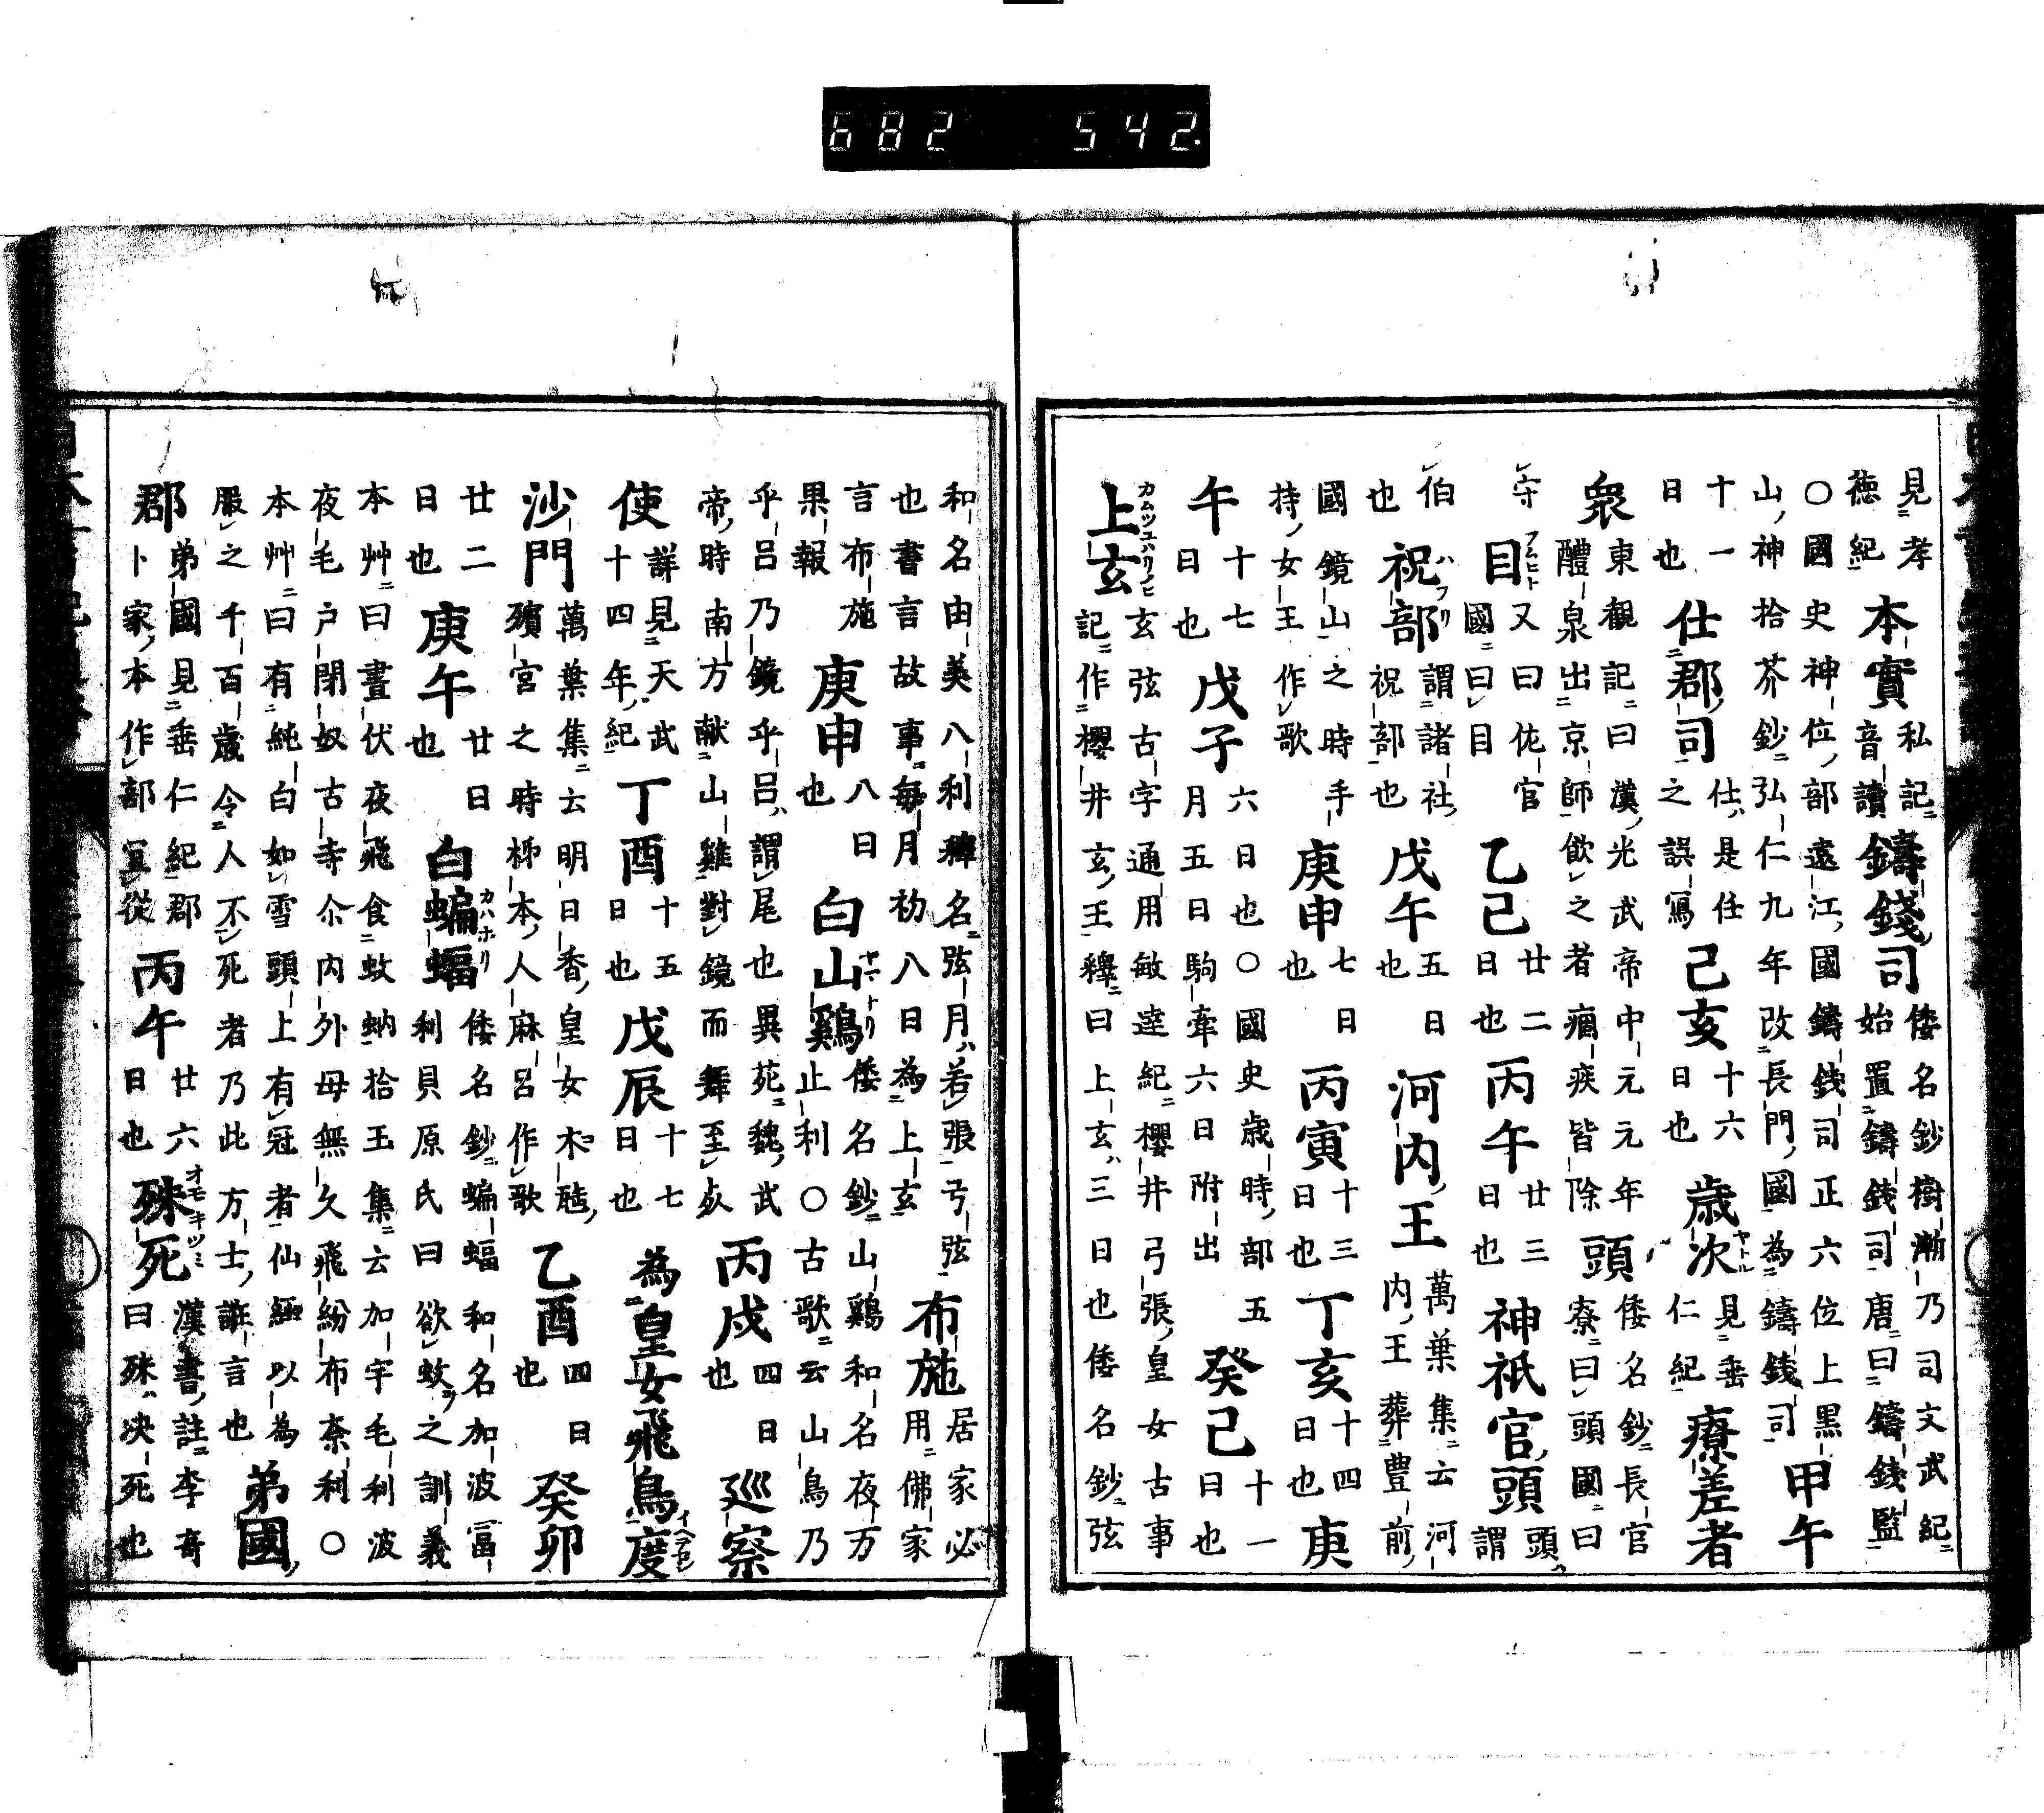 682 542.
見孝德紀 本實 私記音讀 鑄錢司 倭名鈔樹漸乃司文武紀始置鑄錢司唐曰鑄錢監
○國史神位部遠江國鑄錢司正六位上黑山神拾芥鈔弘仁九年改長門國為鑄錢司 甲午
十一日也 仕郡司 仕是任之誤寫 己亥 十六日也 歲次 ヤトル 見垂仁紀 療差者
衆 東観記曰漢光武帝中元元年醴泉出京師飲之者痼疾皆除 頭 倭名鈔長官寮曰頭國曰
守 目 フムヒト 又曰佐官國曰目 乙巳 廿二日也 丙午 廿三日也 神祇官頭 頭謂
伯也 祝部 ハフリ 謂諸社祝部也 戊午 五日也 河内王 萬葉集云河内王葬豊前
國鏡山之時手持女王作歌 庚申 七日也 丙寅 十三日也 丁亥 十四日也 庚
午 十七日也 戊子 六日也○國史歲時部五月五日駒牽六日附出 癸巳 十一日也
上玄 カムツユハリノヒ 玄弦古字通用敏達紀櫻井弓張皇女古事記作櫻井玄王釋曰上玄三日也倭名鈔弦
和名由美八利釋名弦月若張弓弦也書言故事每月初八日為上玄 布施 居家必用佛家
言布施果報 庚申 八日也 白山鷄 ヤマトリ 倭名鈔山鷄和名夜万止利○古歌云山鳥乃
乎呂乃鏡乎呂謂尾也異苑魏武帝時南方献山雞對鏡而舞至死 丙戌 四日也 廵察
使 詳見天武十四年紀 丁酉 十五日也 戊辰 十七日也 為皇女飛鳥度 イヘテセシ
沙門 萬葉集云明日香皇女木𣑊殯宮之時柿本人麻呂作歌 乙酉 四日也 癸卯
廿二日也 庚午 廿日也 白蝙蝠 カハホリ 倭名鈔蝙蝠和名加波冨利貝原氏曰欲蚊之訓義
本艸曰晝伏夜飛食蚊蚋拾玉集云加宇毛利波夜毛户閉奴古寺尒内外母無久飛紛布奈利○
本艸曰有純白如雪頭上有冠者仙經以為服之千百歲令人不死者乃此方士誑言也 弟國
弟國見垂仁紀 郡 郡卜家本作部冝從 丙午 廿六日也 殊死 オモキツミ 漢書註李奇曰殊决死也